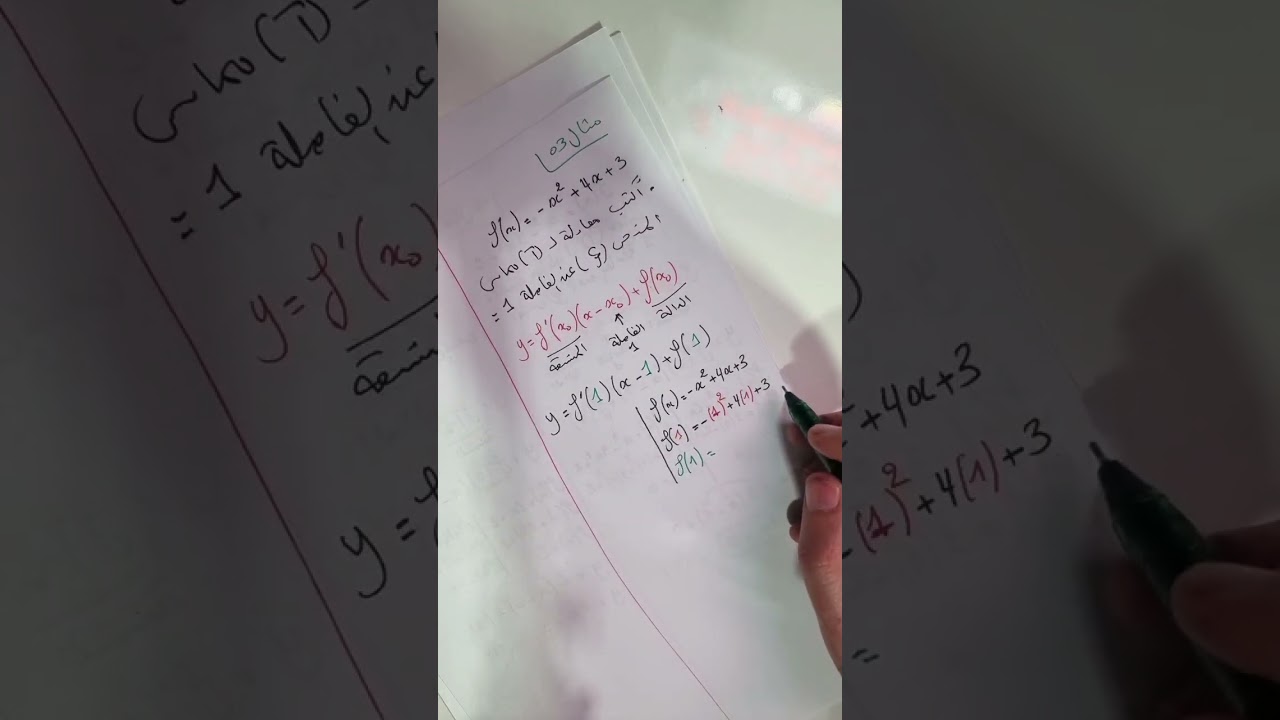 مثال 03
f(x) = -x² + 4x + 3
• أكتب معادلة لـ (T) مماس
المنحى (Cf) عند الفاصلة 1
=
y = f'(x₀)(x - x₀) + f(x₀)
المشتقة الفاصلة الدالة
1
y = f'(1)(x - 1) + f(1)
f(x) = -x² + 4x + 3
f(1) = -(1)² + 4(1) + 3
f(1) =